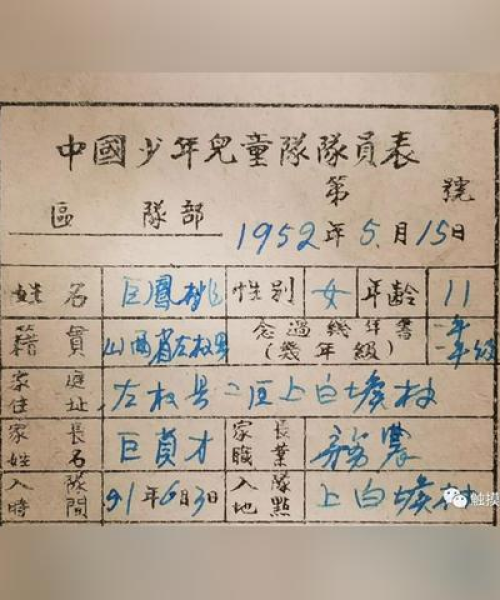 中國少年兒童隊隊員表
第 號
區 隊部
1952年5月15日
姓名 巨鳳桃 性别 女 年齡 11
籍貫 山西省左权县 念過幾年書(幾年級) 一年 一年级
家庭住址 左权县二区上白堠村
家長姓名 巨貟才 家長職業 務農
入隊時間 51年6月3日 入隊地點 上白堠村
触摸